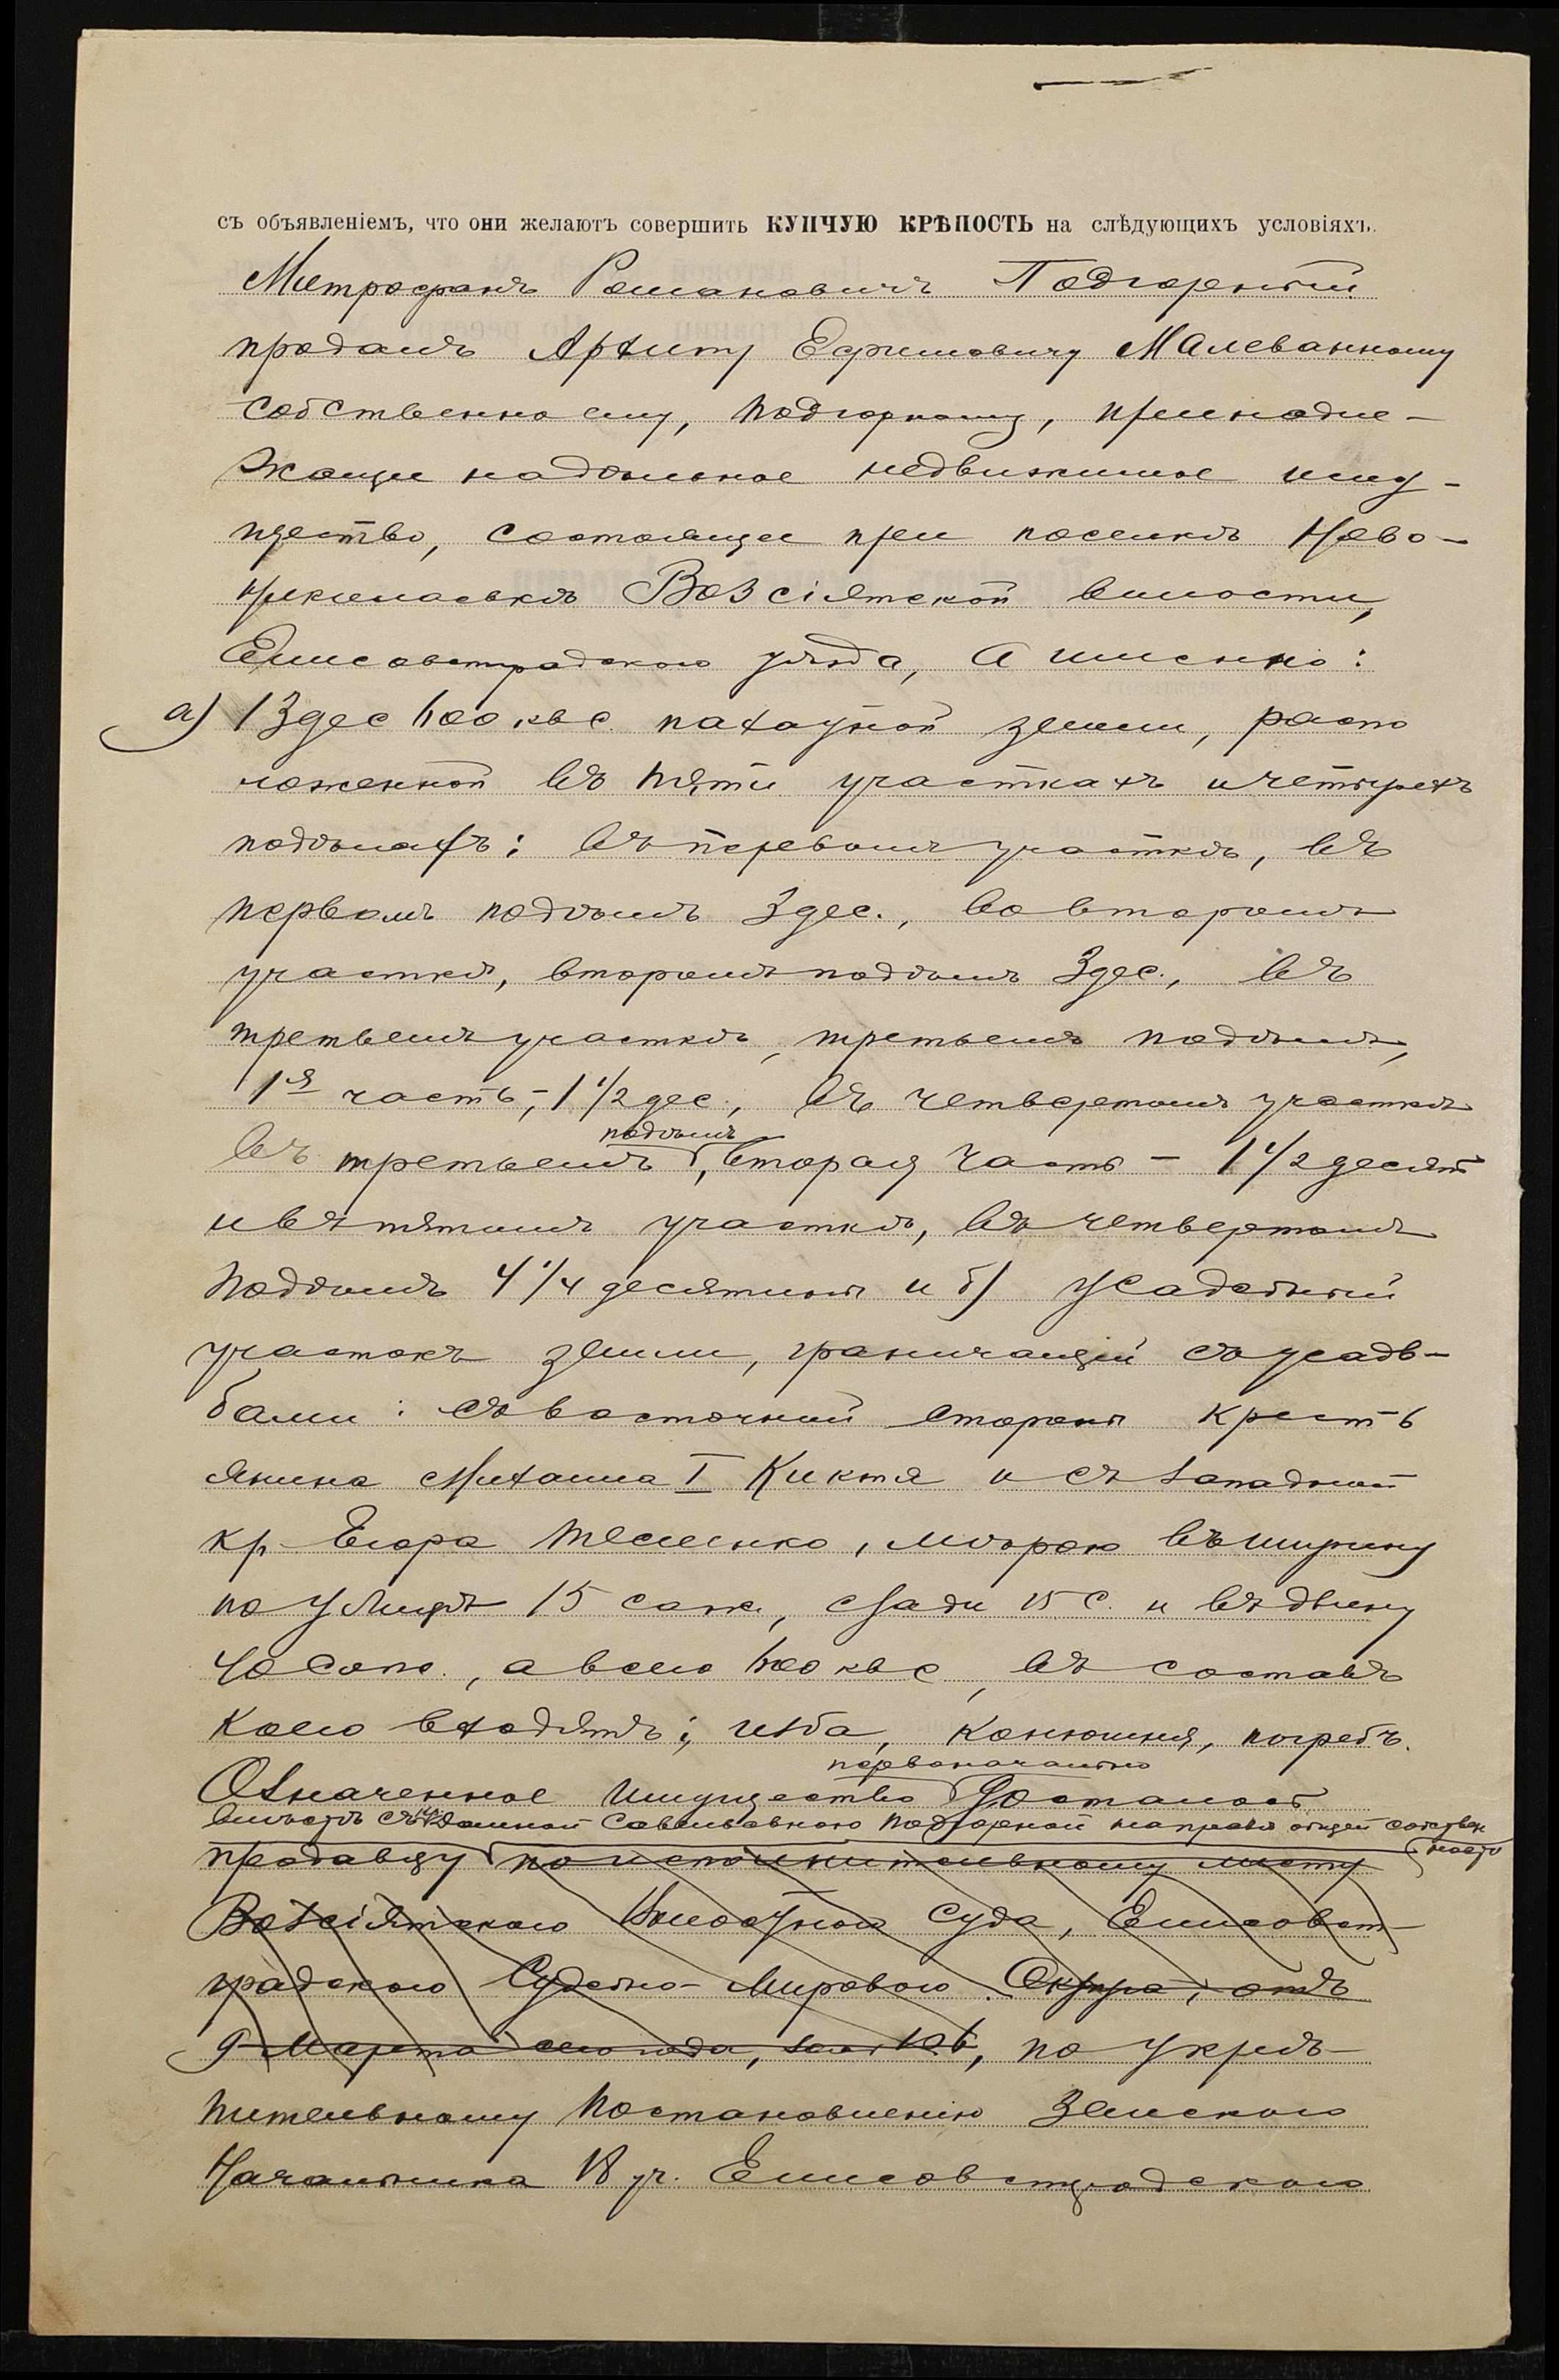 съ объявленіемъ, что они желаютъ совершить КУПЧУЮ КРѢПОСТЬ на слѣдующихъ условіяхъ.
Митрофанъ Романовичъ Подгорный
продалъ Архипу Ефимовичу Малеванному
собственно ему, Подгорному, принадле-
жащее надѣльное недвижимое иму-
щество, состоящее при поселкѣ Ново-
Возсіятской волости,
Елисаветградскаго уѣзда, а именно:
а) 13 дес 600 кв с. пахатной земли, распо
ложенной въ пяти участкахъ и четырехъ
поддѣлахъ: въ первомъ участкѣ, въ
первомъ поддѣлѣ 3 дес., во второмъ
участкѣ, второмъ поддѣлѣ 3 дес., въ
третьемъ участкѣ, третьемъ поддѣлѣ,
1я часть,- 1 1/2 дес., въ четвертомъ участкѣ
поддѣлѣ
въ третьемъ, вторая часть - 1 1/2 десят
и въ пятомъ участкѣ, въ четвертомъ
поддѣлѣ 4 1/4 десятины и б) усадебный
участокъ земли, граничащій съ усадь-
бами: съ восточной стороны кресть
янина Михаила I Киктя и съ западной
кр. Егора Тесленко, мѣрою въ ширину
по улицѣ 15 саж., сзади 15 с. и въ длину
40 саж., а всего 600 кв с, въ составъ
коего входятъ: изба, конюшня, погребъ.
первоначально
Означенное имущество досталось
вмѣстѣ съ Подгорной на правѣ общей собствен
ности
продавцу по исполнительному листу
Возсіятскаго Волостного Суда, Елисавет-
градскаго Судебно-Мирового Округа, отъ
9 Марта сего года, за № 106, по укрѣ-
пительному постановленію Земскаго
Начальника 18 уч. Елисаветградскаго